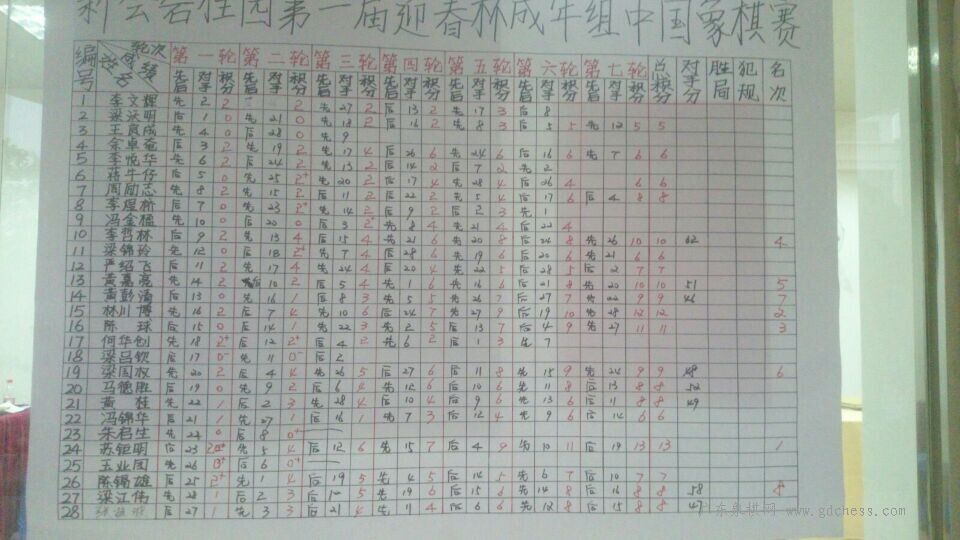 新会碧桂园第一届迎春杯成年组中国象棋赛
编号 姓名 成绩 轮次 第一轮 第二轮 第三轮 第四轮 第五轮 第六轮 第七轮 总积分 对手分 胜局 犯规 名次
先后 对手 积分 先后 对手 积分 先后 对手 积分 先后 对手 积分 先后 对手 积分 先后 对手 积分 先后 对手 积分
1 李文辉 先 2 2 2 先 27 2 后 13 2 先 17 3 后 8
2 梁沃明 后 1 0 先 21 0 后 18 2 后 16 2 先 8 3 后 5 5 先 12 5 5
3 王良成 先 4 0 后 28 0 先 9
4 余卓苍 后 3 2 先 19 2 先 17 4 后 26 6 先 24 6 后 16 6 先 7 6 6
5 李悦华 先 6 2 后 24 2 先 13 2 后 14 2 后 7 2 先 2
6 蒋牛仔 后 5 0 先 25 2+ 先 20 2 后 17 4 先 28 4 后 26 4 6 6
7 周励志 先 8 2 先 15 2 后 11 2 后 22 2 先 5 4 后 17 6 后 4 8 8
8 李煜桥 后 7 0 先 23 2+ 先 14 2 后 9 2 后 2 3 先 1
9 冯金榅 先 10 0 后 20 0 后 3 2+ 先 8 4 先 21 4 后 22 4
10 李哲林 后 9 2 先 13 4 后 15 4 先 21 6 先 20 8 后 24 8 先 26 10 10 62 4
11 梁锦玲 先 12 0 后 18 2+ 先 7 4 后 28 6 先 19 6 后 20 6 先 21 6 6
12 严绍飞 后 11 2 先 17 4 先 24 4 后 20 4 先 22 5 后 28 5 后 2 7 7
13 黄嘉亮 先 14 2 后 10 2 后 5 4 先 1 6 先 16 6 后 21 8 先 20 10 10 51 5
14 黄彭涌 后 13 0 先 16 1 后 8 3 先 5 5 先 26 7 后 27 7 先 22 9 9 46 7
15 林川博 先 16 2 后 7 4 先 10 6 后 24 7 先 27 9 后 19 10 先 28 12 12 2
16 陈球 后 15 0 后 14 1 先 22 3 先 2 5 后 13 7 先 4 9 先 27 11 11 3
17 何华创 先 18 2+ 后 12 2+ 后 4 2 先 6 2 后 1 3 先 7
18 梁吕钦 后 17 0- 先 11 0- 后 2
19 梁国权 先 20 2 后 4 4 先 26 5 后 27 6 后 11 8 先 15 9 先 24 9 9 48 6
20 马德胜 后 19 0 先 9 2 后 6 4 先 12 6 后 10 6 先 11 8 后 13 8 8 52
21 黄桂 先 22 1 后 2 3 先 28 4 后 10 4 后 9 6 先 13 6 后 11 8 8 49
22 冯锦华 后 21 1 先 27 1 后 16 1 先 7 3 后 12 4 先 9 6 后 14 6 6
23 朱启生 先 24 0 后 8 0
24 苏钜明 后 23 2+ 先 5 4 后 12 6 先 15 7 后 4 9 先 10 11 后 19 13 13 1
25 王业园 先 26 0+ 后 6 0+
26 陈锡雄 后 25 2+ 先 1 4 后 19 5 先 4 5 后 14 5 先 6 7 后 10 7 7
27 梁江伟 先 28 1 后 2 3 后 1 5 先 19 6 后 15 6 先 14 8 后 16 8 8 58 8
28 后 27 1 先 3 3 后 21 4 先 11 4 后 6 6 先 12 8 后 15 8 8 47
广东象棋网 www.gdchess.com